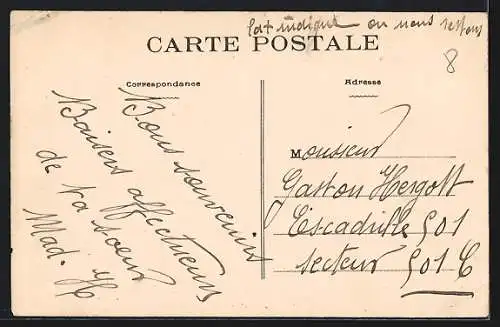 la + indique ou nous restons
CARTE POSTALE
8
Correspondance
Adresse
Bons souvenirs
Baisers affectueux
de ta soeur
Mad. H
Monsieur
Gaston Hergott
Escadrille 501
secteur 501 C